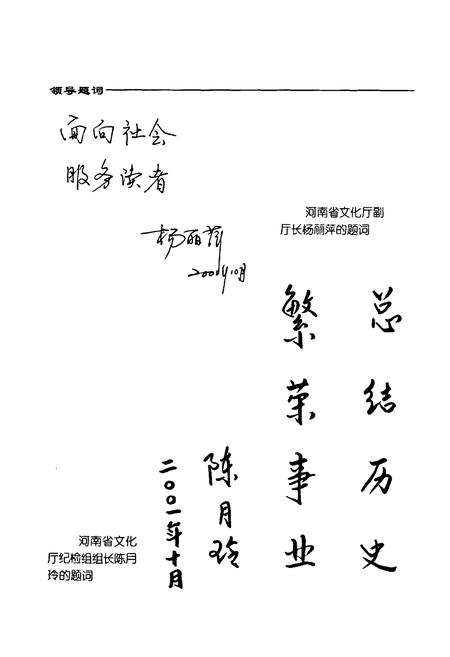 领导题词
面向社会
服务读者
杨丽萍
2001年10月
河南省文化厅副
厅长杨丽萍的题词
总结历史
繁荣事业
陈月玲
二〇〇一年十月
河南省文化
厅纪检组组长陈月
玲的题词